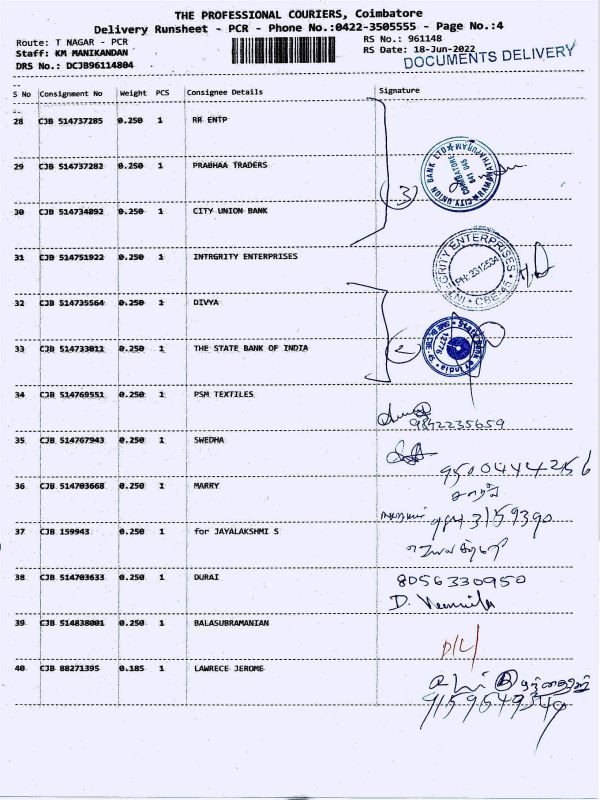 THE PROFESSIONAL COURIERS, Coimbatore
Delivery Runsheet - PCR - Phone No.:0422-3505555 - Page No.:4
Route: T NAGAR - PCR
RS No.: 961148
Staff: KM MANIKANDAN
RS Date: 18-Jun-2022
DRS No.: DCJB96114804
DOCUMENTS DELIVERY
S No Consignment No Weight PCS Consignee Details Signature
28 CJB 514737285 0.250 1 RR ENTP
29 CJB 514737282 0.250 1 PRABHAA TRADERS
CITY UNION BANK LTD
COIMBATORE
641 045
3
30 CJB 514734892 0.250 1 CITY UNION BANK
31 CJB 514751922 0.250 1 INTRGRITY ENTERPRISES
INTEGRITY ENTERPRISES
PH: 2312534
CBE-45
32 CJB 514735564 0.250 1 DIVYA
33 CJB 514733011 0.250 1 THE STATE BANK OF INDIA
2
State Bank of India
12776
34 CJB 514769551 0.250 1 PSM TEXTILES
9842235659
35 CJB 514767943 0.250 1 SWEDHA
9500444256
36 CJB 514703668 0.250 1 MARRY
9843159390
37 CJB 159943 0.250 1 for JAYALAKSHMI S
38 CJB 514703633 0.250 1 DURAI
8056330950
39 CJB 514838001 0.250 1 BALASUBRAMANIAN
D/L
40 CJB 88271395 0.185 1 LAWRECE JEROME
9159649349